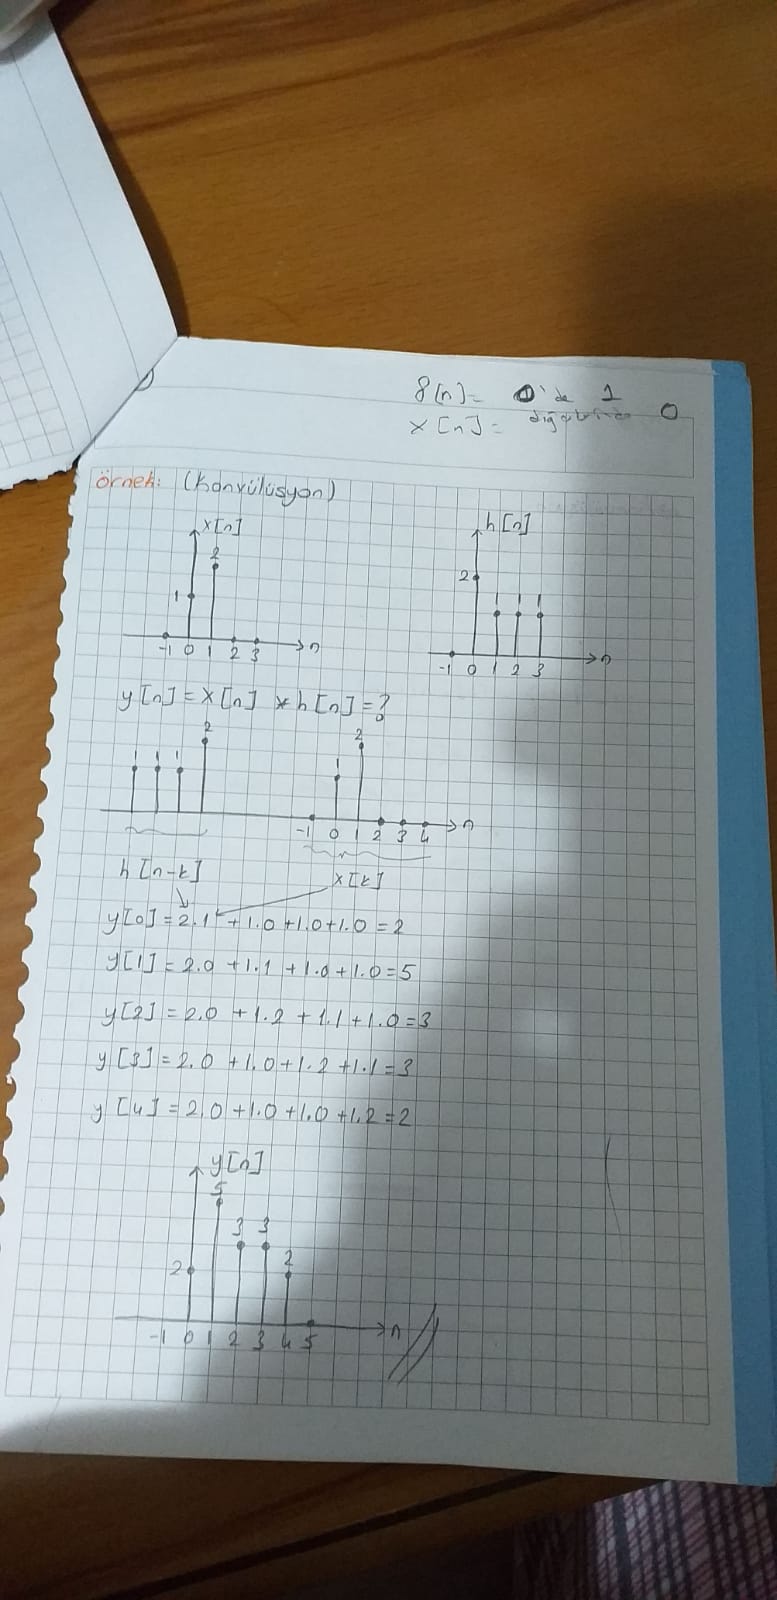 δ[n]= 0'da 1
x[n]= 0
örnek: (konvülüsyon)
x[n]
2
1
-1 0 1 2 3 n
h[n]
2
1 1 1
-1 0 1 2 3 n
y[n] = x[n] * h[n] = ?
1 1 1 2
1 2
-1 0 1 2 3 4 n
h[n-k] x[k]
y[0] = 2.1 + 1.0 + 1.0 + 1.0 = 2
y[1] = 2.0 + 1.1 + 1.0 + 1.0 = 5
y[2] = 2.0 + 1.2 + 1.1 + 1.0 = 3
y[3] = 2.0 + 1.0 + 1.2 + 1.1 = 3
y[4] = 2.0 + 1.0 + 1.0 + 1.2 = 2
y[n]
5
3 3
2 2
-1 0 1 2 3 4 5 n